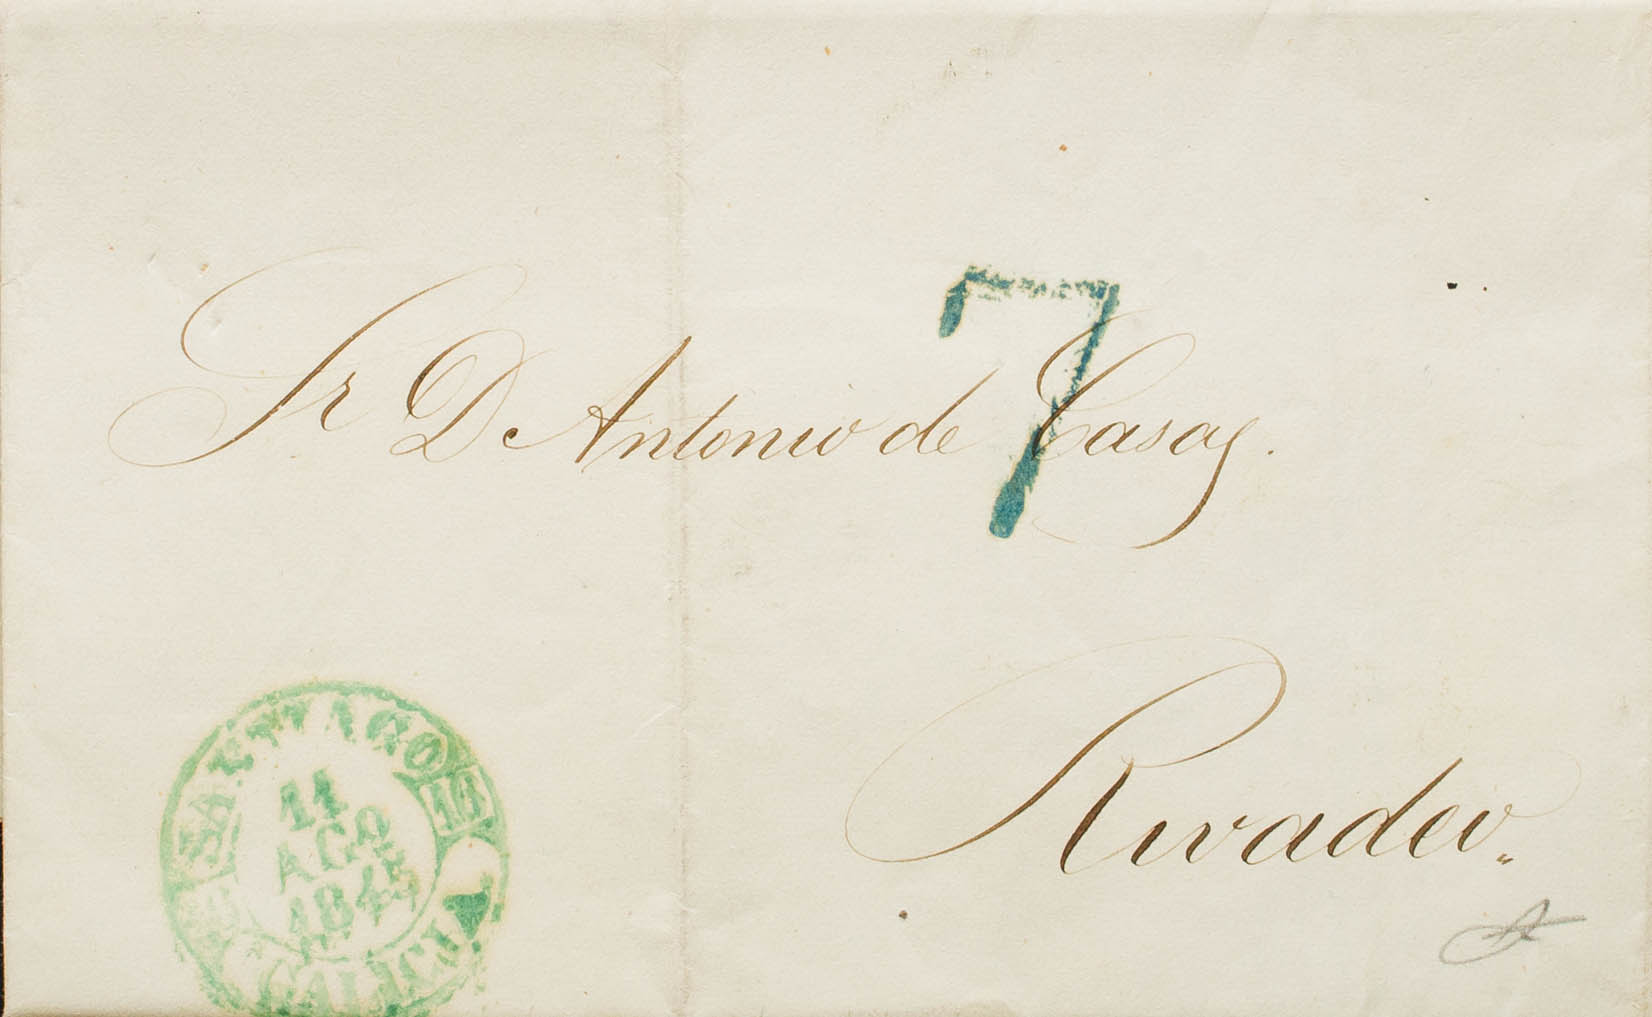 7
Sr D Antonio de Casas.
Rivadeo„
SANTIAGO
11
AGO
1845
GALICIA